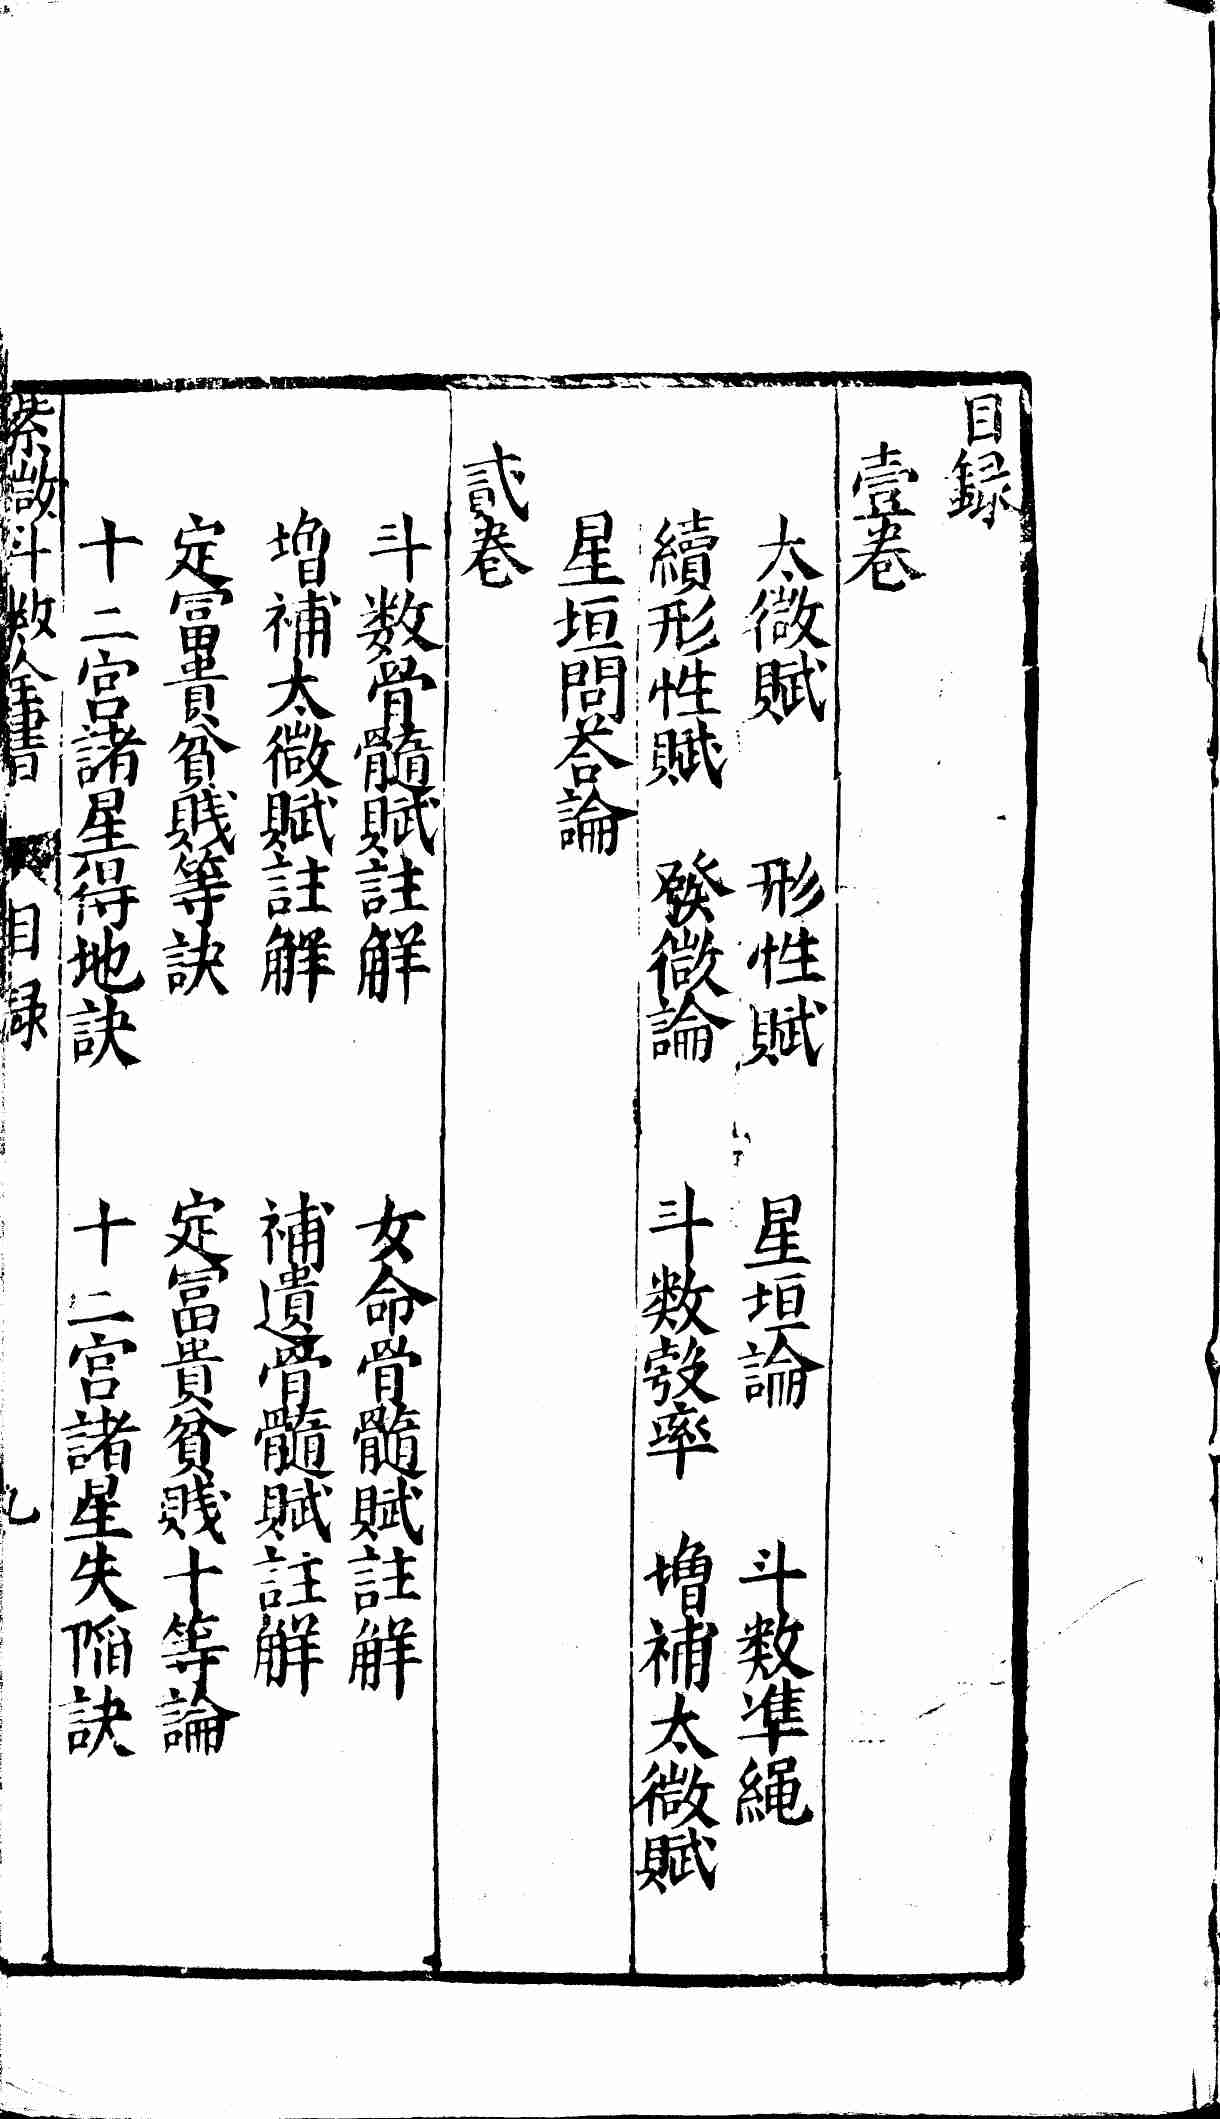 目録
壹卷
太微賦　形性賦　星垣論　斗数準繩
續形性賦　發微論　斗数彀率　增補太微賦
星垣問荅論
貳卷
斗数骨髓賦註解　女命骨髓賦註解
增補太微賦註解　補遺骨髓賦註解
定冨貴貧賤等訣　定冨貴貧賤十等論
十二宫諸星得地訣　十二宫諸星失陷訣
紫微斗数全書　目録　九